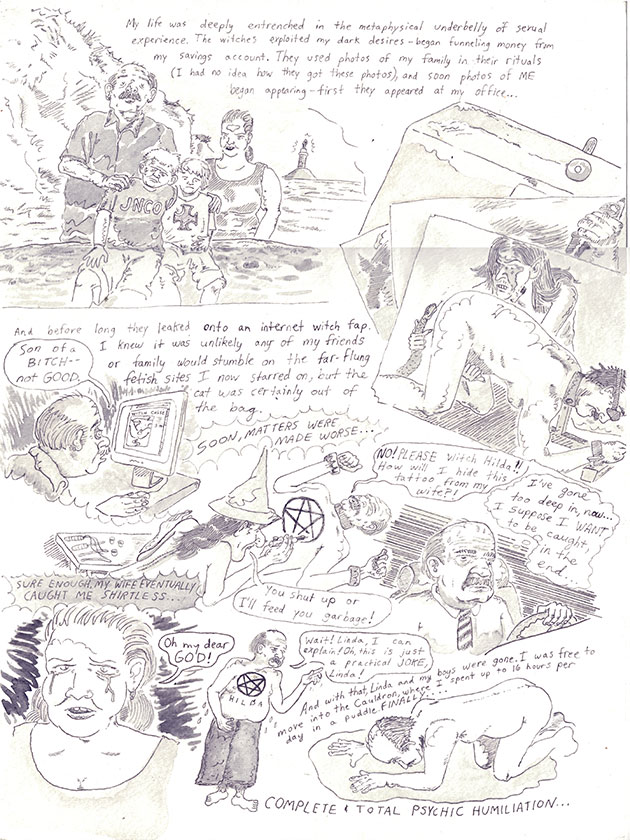 My life was deeply entrenched in the metaphysical underbelly of sexual
experience. The witches exploited my dark desires - began funneling money from
my savings account. They used photos of my family in their rituals
(I had no idea how they got these photos), and soon photos of ME
began appearing - first they appeared at my office...
JNCO
And before long they leaked onto an internet witch fap.
I knew it was unlikely any of my friends
or family would stumble on the far-flung
fetish sites I now starred on, but the
cat was certainly out of
the bag.
Son of a
BITCH--
not GOOD.
SOON, MATTERS WERE
MADE WORSE...
NO! PLEASE Witch Hilda!!
How will I hide this
tattoo from my
wife?!
You shut up or
I'll feed you garbage!
I've gone
too deep in, now...
I suppose I WANT
to be caught,
in the
end...
SURE ENOUGH, MY WIFE EVENTUALLY
CAUGHT ME SHIRTLESS...
Oh my dear
GOD!
HILDA
Wait! Linda, I can
explain! Oh, this is just
a practical JOKE,
Linda!
And with that, Linda and my boys were gone. I was free to
move into the Cauldron, where I spent up to 16 hours per
day in a puddle. FINALLY...
COMPLETE & TOTAL PSYCHIC HUMILIATION...